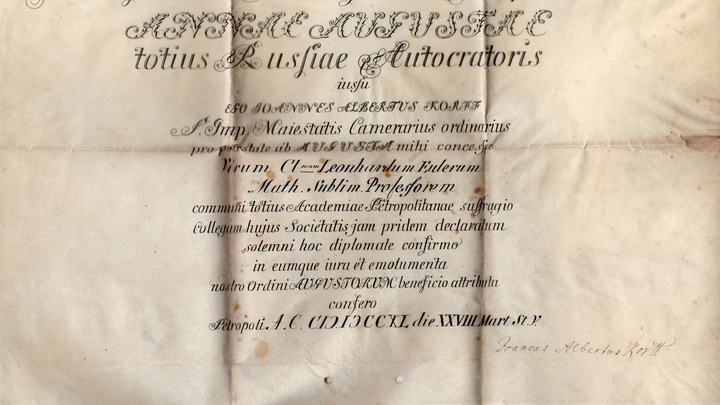 ANNAE AUGUSTAE
totius Russiae Autocratoris
iussu
EGO IOANNES ALBERTUS KORFF
S. Imp. Maiestatis Camerarius ordinarius
pro potestate ab AUGUSTA mihi concessa
Virum Cl Leonhardum Eulerum
Math. Sublim. Professorem
communi totius Academiae Petropolitanae suffragio
Collegam hujus Societatis jam pridem declaratum
solemni hoc diplomate confirmo
in eumque iura et emolumenta
nostro Ordini AUGUSTORUM beneficio attributa
confero
Petropoli. A. C. CIƆIƆCCXL die XXVIII Mart St. V.
Ioannes Albertus Korff